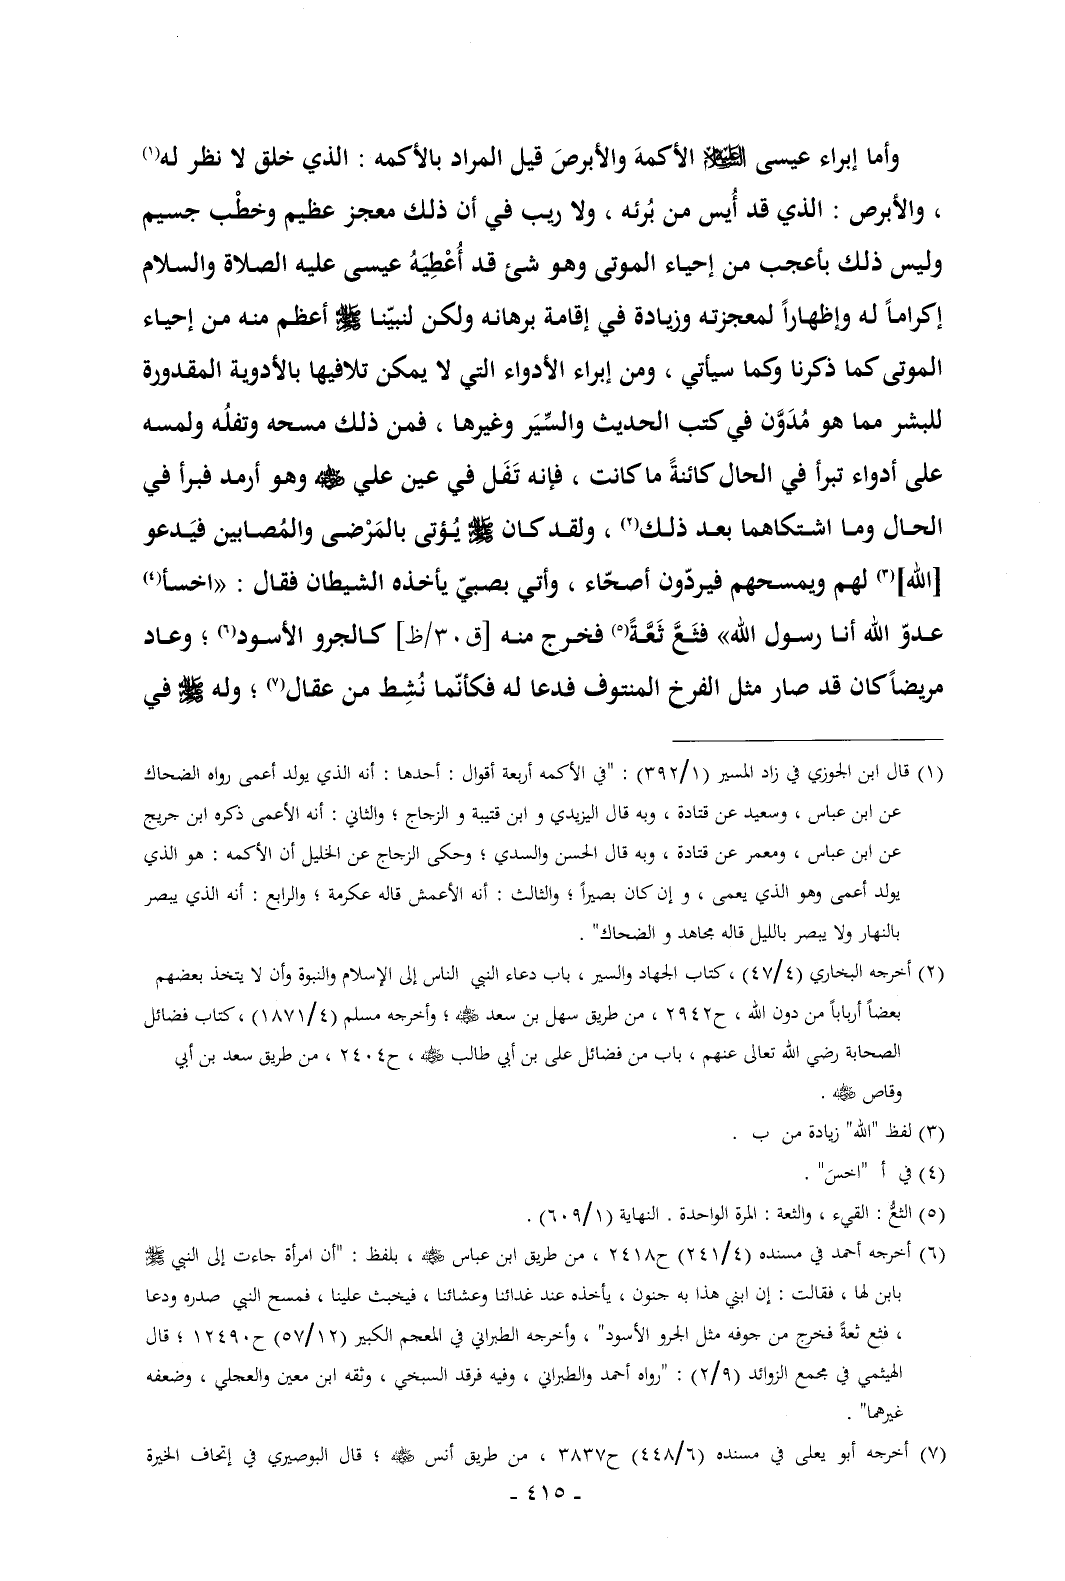 وأما إبراء عيسى العَلَيْهِ السَّلَام الأكمهَ والأبرصَ قيل المراد بالأكمه : الذي خلق لا نظر له(١)
، والأبرص : الذي قد أُيس من بُرئه ، ولا ريب في أن ذلك معجز عظيم وخطْب جسيم
وليس ذلك بأعجب من إحياء الموتى وهو شئ قد أُعْطِيَهُ عيسى عليه الصلاة والسلام
إكراماً له وإظهاراً لمعجزته وزيادة في إقامة برهانه ولكن لنبيّنا ﷺ أعظم منه من إحياء
الموتى كما ذكرنا وكما سيأتي ، ومن إبراء الأدواء التي لا يمكن تلافيها بالأدوية المقدورة
للبشر مما هو مُدَوَّن في كتب الحديث والسِّيَر وغيرها ، فمن ذلك مسحه وتفلُه ولمسه
على أدواء تبرأ في الحال كائنةً ما كانت ، فإنه تَفَل في عين علي ﵁ وهو أرمد فبرأ في
الحال وما اشتكاهما بعد ذلك(٢) ، ولقد كان ﷺ يُؤتى بالمَرْضى والمُصابين فيَدعو
[الله](٣) لهم ويمسحهم فيردّون أصحّاء ، وأتي بصبيّ يأخذه الشيطان فقال : «اخسأ(٤)
عدوّ الله أنا رسول الله» فثَعَّ ثَعَّةً(٥) فخرج منه [ق٣٠/ظ] كالجرو الأسود(٦) ؛ وعاد
مريضاً كان قد صار مثل الفرخ المنتوف فدعا له فكأنّما نُشِط من عقال(٧) ؛ وله ﷺ في
(١) قال ابن الجوزي في زاد المسير (٣٩٢/١) : "في الأكمه أربعة أقوال : أحدها : أنه الذي يولد أعمى رواه الضحاك
عن ابن عباس ، وسعيد عن قتادة ، وبه قال اليزيدي و ابن قتيبة و الزجاج ؛ والثاني : أنه الأعمى ذكره ابن جريج
عن ابن عباس ، ومعمر عن قتادة ، وبه قال الحسن والسدي ؛ وحكى الزجاج عن الخليل أن الأكمه : هو الذي
يولد أعمى وهو الذي يعمى ، و إن كان بصيراً ؛ والثالث : أنه الأعمش قاله عكرمة ؛ والرابع : أنه الذي يبصر
بالنهار ولا يبصر بالليل قاله مجاهد و الضحاك" .
(٢) أخرجه البخاري (٤٧/٤) ، كتاب الجهاد والسير ، باب دعاء النبي الناس إلى الإسلام والنبوة وأن لا يتخذ بعضهم
بعضاً أرباباً من دون الله ، ح٢٩٤٢ ، من طريق سهل بن سعد ﵁ ؛ وأخرجه مسلم (١٨٧١/٤) ، كتاب فضائل
الصحابة رضي الله تعالى عنهم ، باب من فضائل على بن أبي طالب ﵁ ، ح٢٤٠٤ ، من طريق سعد بن أبي
وقاص ﵁ .
(٣) لفظ "الله" زيادة من ب .
(٤) في أ "اخسَ" .
(٥) الثعُّ : القيء ، والثعة : المرة الواحدة . النهاية (٦٠٩/١) .
(٦) أخرجه أحمد في مسنده (٢٤١/٤) ح٢٤١٨ ، من طريق ابن عباس ﵁ ، بلفظ : "أن امرأة جاءت إلى النبي ﷺ
بابن لها ، فقالت : إن ابني هذا به جنون ، يأخذه عند غدائنا وعشائنا ، فيخبث علينا ، فمسح النبي صدره ودعا
، فثع ثعةً فخرج من جوفه مثل الجرو الأسود" ، وأخرجه الطبراني في المعجم الكبير (٥٧/١٢) ح١٢٤٩٠ ؛ قال
الهيثمي في مجمع الزوائد (٢/٩) : "رواه أحمد والطبراني ، وفيه فرقد السبخي ، وثقه ابن معين والعجلي ، وضعفه
غيرهما" .
(٧) أخرجه أبو يعلى في مسنده (٤٤٨/٦) ح٣٨٣٧ ، من طريق أنس ﵁ ؛ قال البوصيري في إتحاف الخيرة
- ٤١٥ -